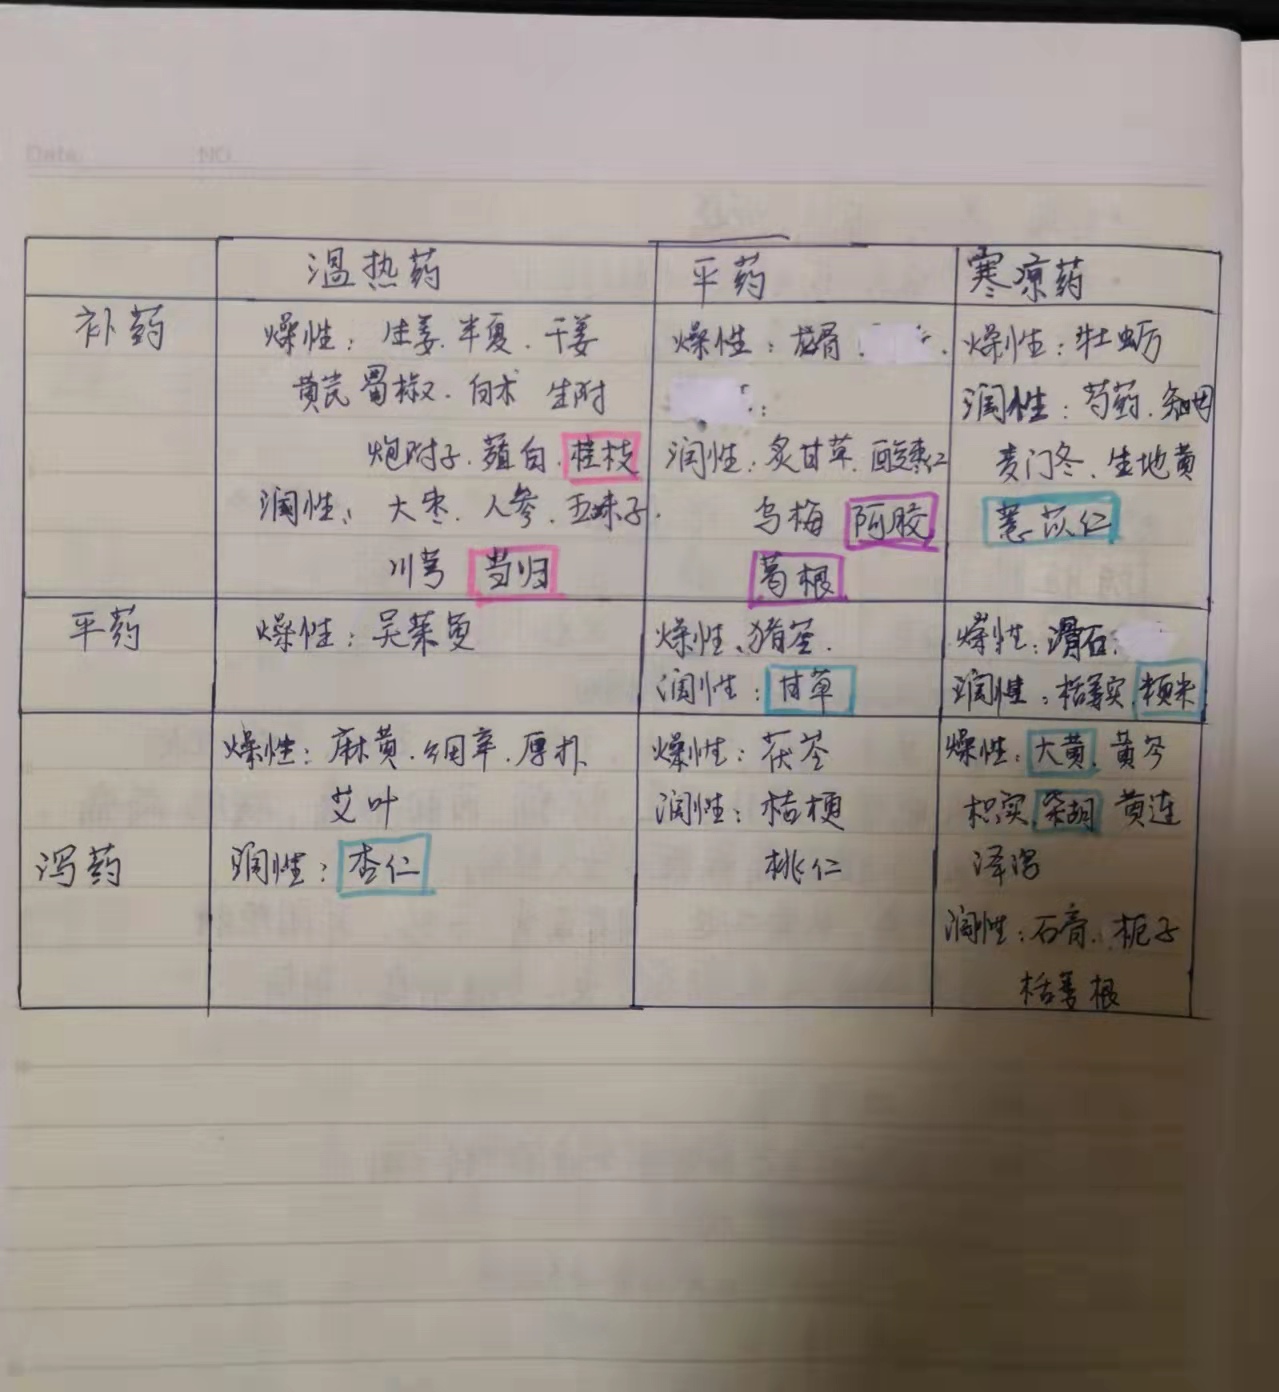 Date NO
温热药 平药 寒凉药
补药
燥性：生姜.半夏.干姜
黄芪 蜀椒.白术 生附
炮附子.薤白.桂枝
润性：大枣.人参.五味子.
川芎 当归
燥性：龙骨.
润性：炙甘草.酸枣仁
乌梅 阿胶
葛根
燥性：牡蛎
润性：芍药.知母
麦门冬.生地黄
薏苡仁
平药
燥性：吴茱萸
燥性：猪苓.
润性：甘草
燥性：滑石.
润性：栝蒌实.粳米
泻药
燥性：麻黄.细辛.厚朴
艾叶
润性：杏仁
燥性：茯苓
润性：桔梗
桃仁
燥性：大黄.黄芩
枳实.柴胡 黄连
泽泻
润性：石膏.栀子
栝蒌根